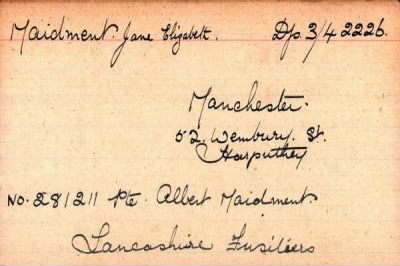 Maidment. Jane Elizabeth. Dp. 3/4 2226.
Manchester.
52. Wembury. St.
Harpurhey
No. 281211 Pte. Albert Maidment.
Lancashire Fusiliers